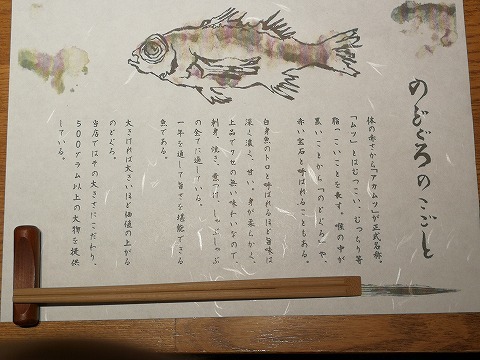 のどぐろのこごと
体の赤さから「アカムツ」が正式名称。
「ムツ」とはむつっこい、むっちり等
脂っこいことを表す。喉の中が
黒いことから「のどぐろ」や、
赤い宝石と呼ばれることもある。
白身魚のトロと呼ばれるほど旨味は
深く濃く、甘い。身が柔らかく、
上品でクセの無い味わいなので、
刺身、焼き、煮つけ、しゃぶしゃぶ
の全てに適している。
一年を通して旨さを堪能できる
魚である。
大きければ大きいほど価値の上がる
のどぐろ。
当店ではその大きさにこだわり、
500グラム以上の大物を提供
している。